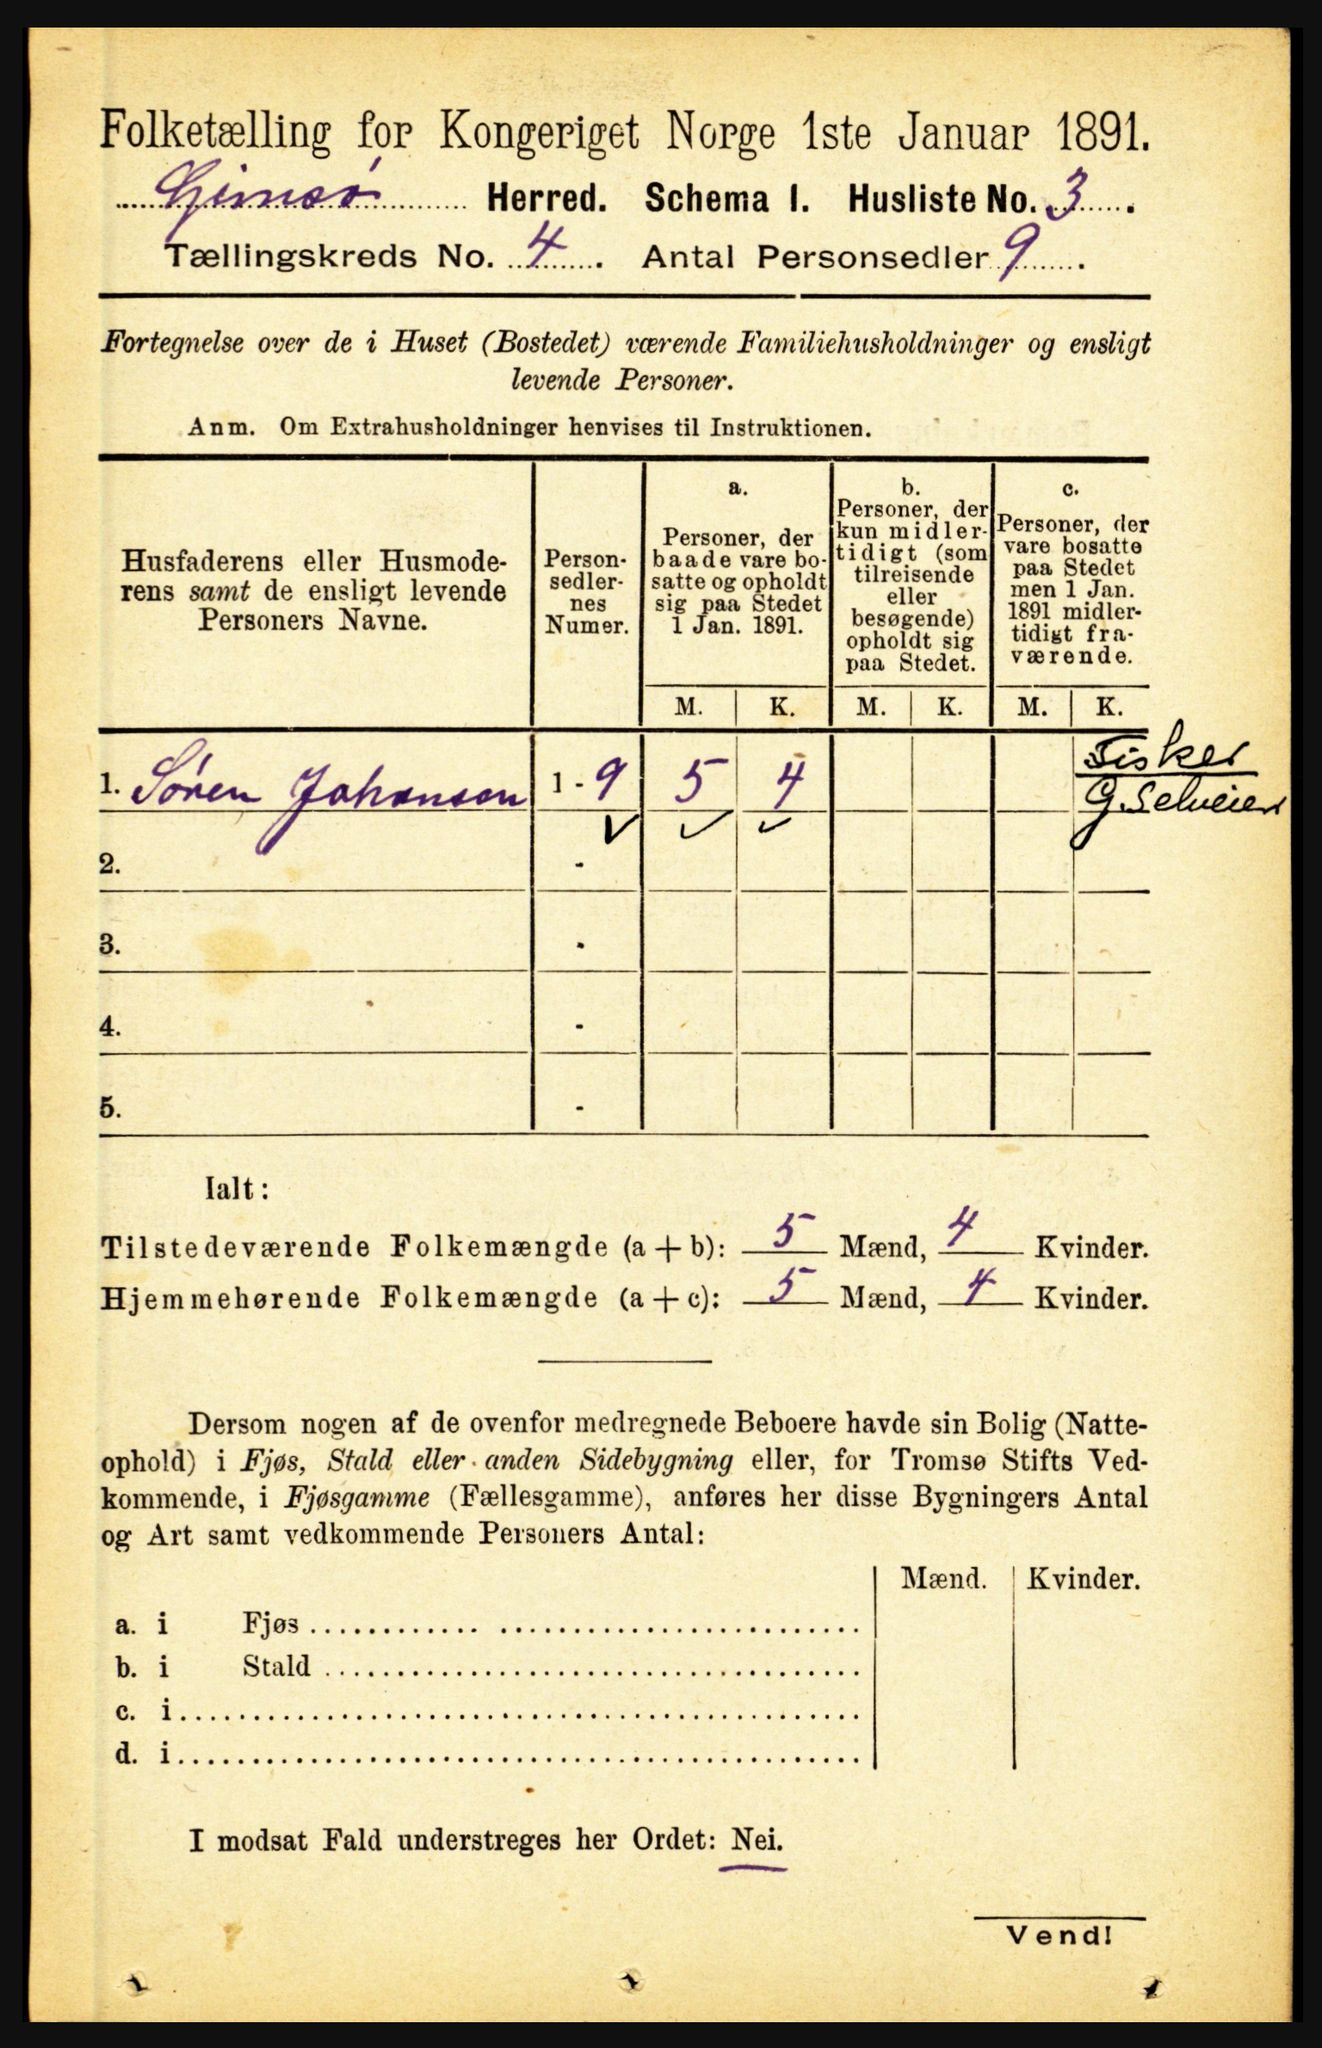 Folketælling for Kongeriget Norge 1ste Januar 1891.
Gimsø Herred. Schema I. Husliste No. 3.
Tællingskreds No. 4. Antal Personsedler 9.
Fortegnelse over de i Huset (Bostedet) værende Familiehusholdninger og ensligt
levende Personer.
Anm. Om Extrahusholdninger henvises til Instruktionen.
Husfaderens eller Husmode-
rens samt de ensligt levende
Personers Navne.
Person-
sedler-
nes
Numer.
a.
Personer, der
baade vare bo-
satte og opholdt
sig paa Stedet
1 Jan. 1891.
b.
Personer, der
kun midler-
tidigt (som
tilreisende
eller
besøgende)
opholdt sig
paa Stedet.
c.
Personer, der
vare bosatte
paa Stedet
men 1 Jan.
1891 midler-
tidigt fra-
værende.
M. K. M. K. M. K.
1. Søren Johansen 1 - 9 5 4 Fisker
G. Selveier
2. -
3. -
4. -
5. -
Ialt:
Tilstedeværende Folkemængde (a + b): 5 Mænd, 4 Kvinder.
Hjemmehørende Folkemængde (a + c): 5 Mænd, 4 Kvinder.
Dersom nogen af de ovenfor medregnede Beboere havde sin Bolig (Natte-
ophold) i Fjøs, Stald eller anden Sidebygning eller, for Tromsø Stifts Ved-
kommende, i Fjøsgamme (Fællesgamme), anføres her disse Bygningers Antal
og Art samt vedkommende Personers Antal:
Mænd. Kvinder.
a. i Fjøs
b. i Stald
c. i
d. i
I modsat Fald understreges her Ordet: Nei.
Vend!